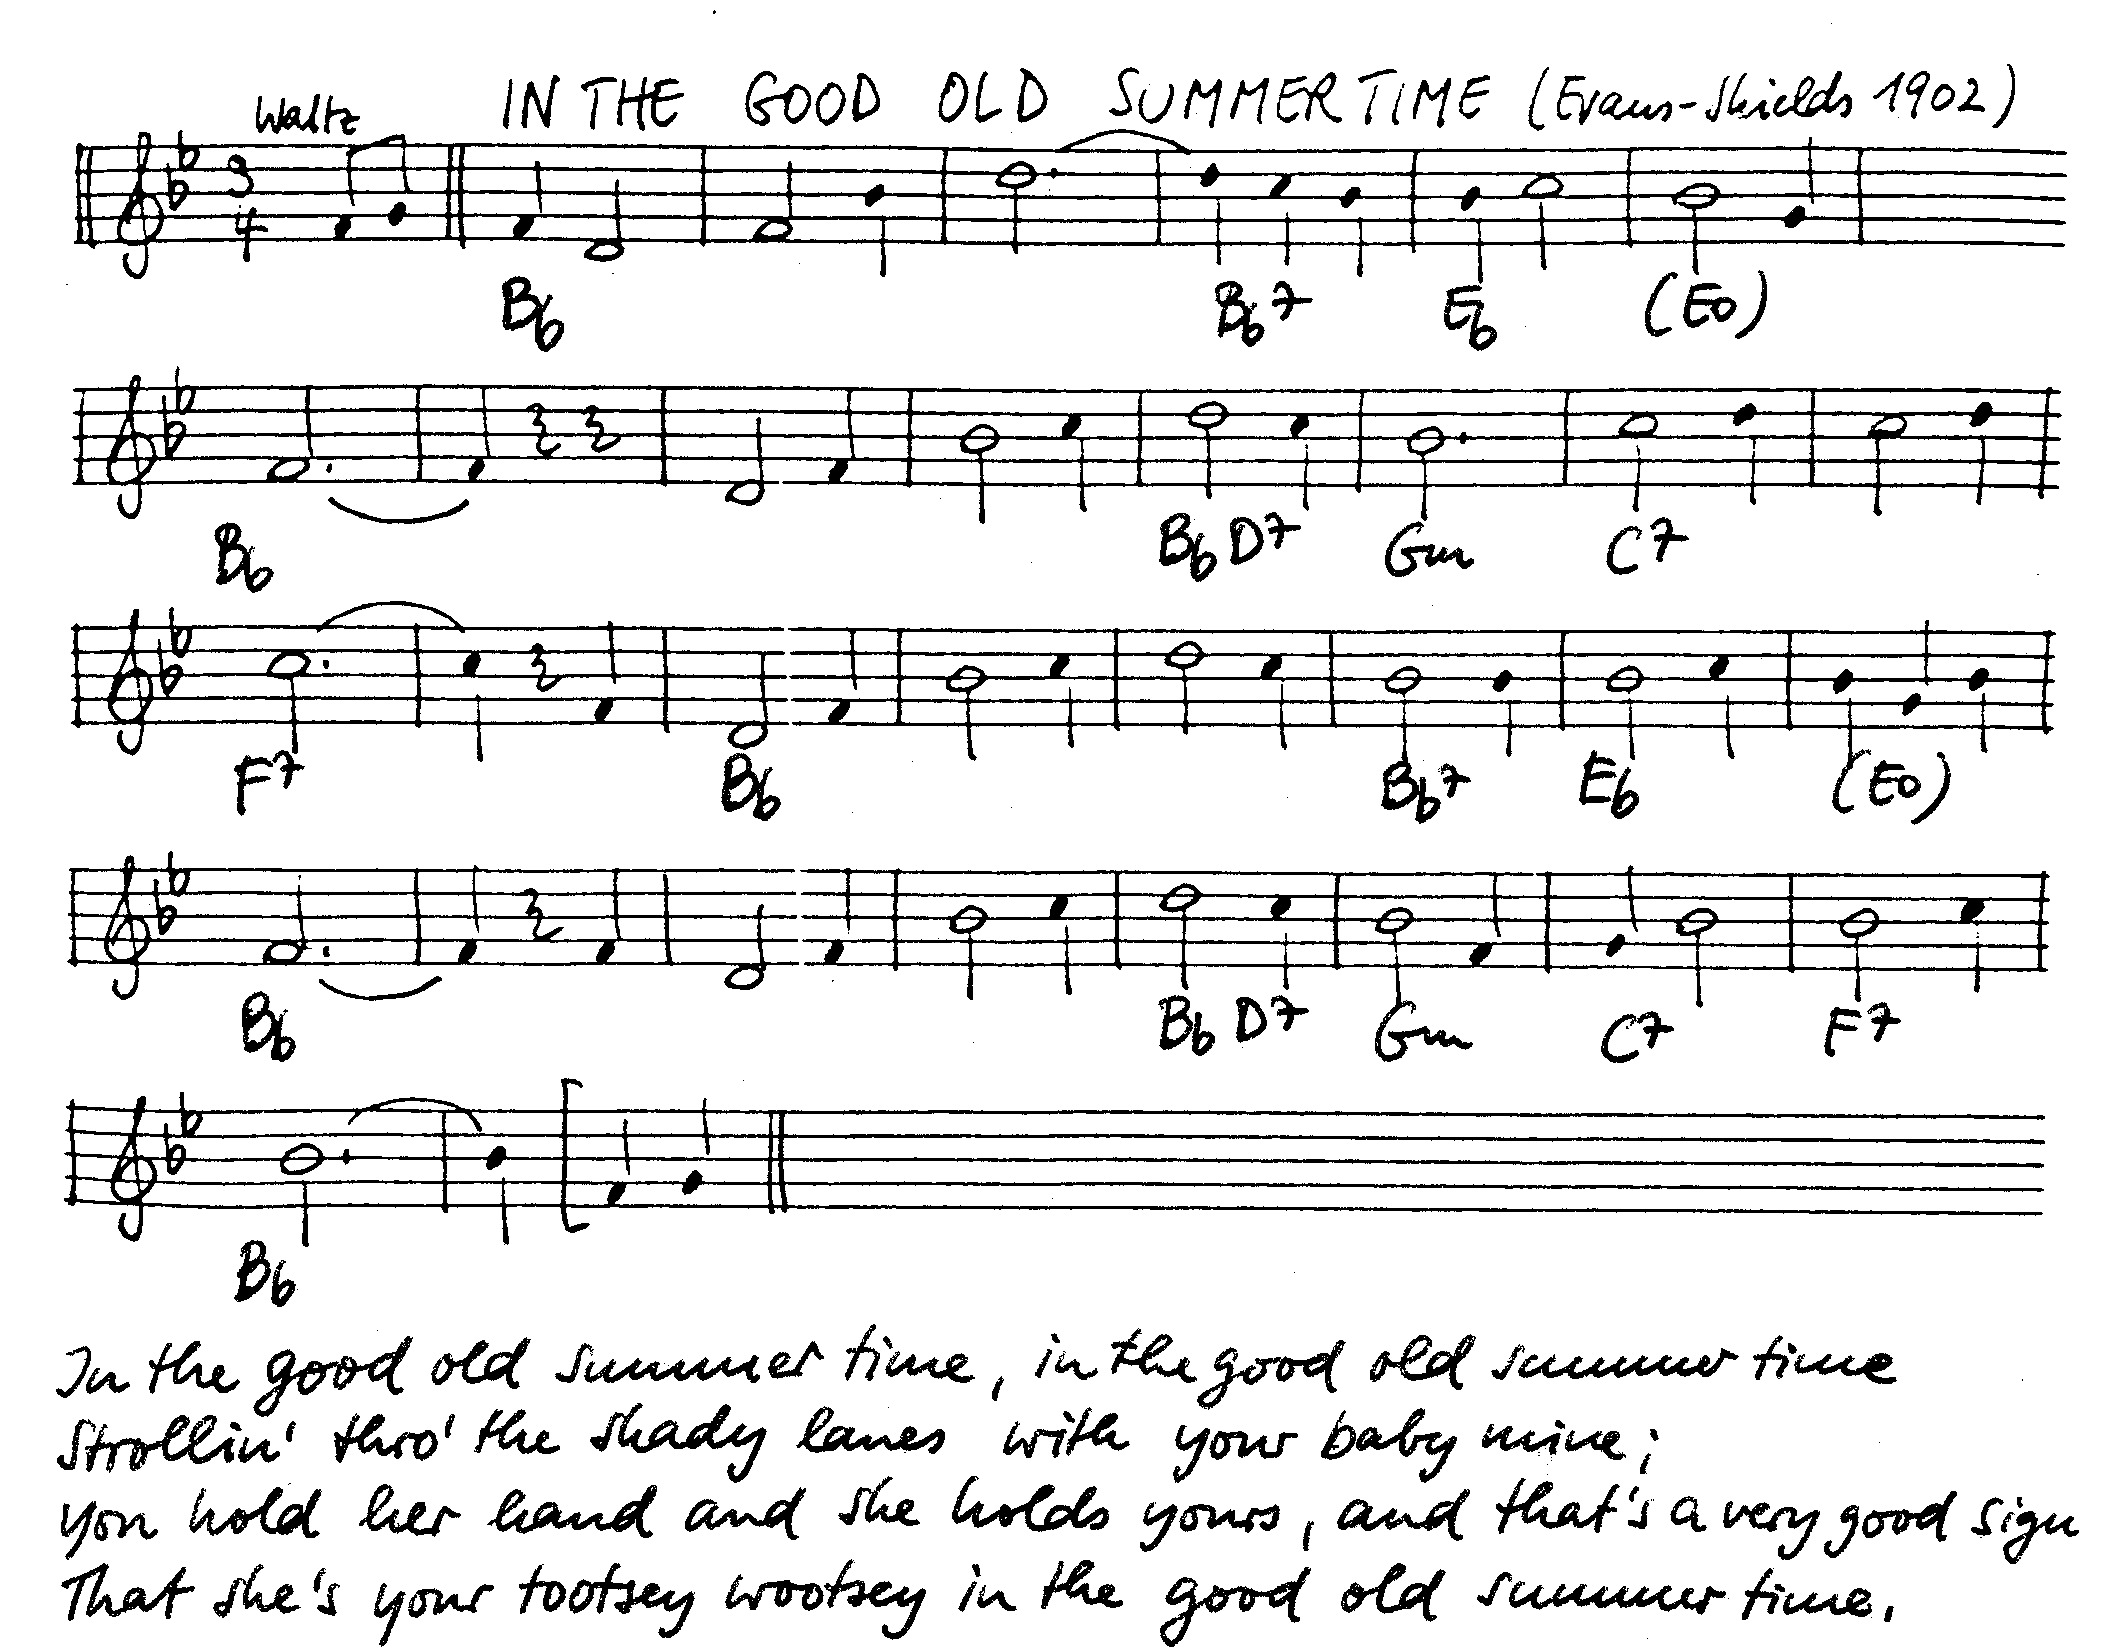 Waltz IN THE GOOD OLD SUMMERTIME (Evans-Shields 1902)
3
4
Bb Bb7 Eb (Eo)
Bb Bb D7 Gm C7
F7 Bb Bb7 Eb (Eo)
Bb Bb D7 Gm C7 F7
Bb
In the good old summer time, in the good old summer time
Strollin' thro' the shady lanes with your baby mine;
you hold her hand and she holds yours, and that's a very good sign
That she's your tootsey wootsey in the good old summer time.